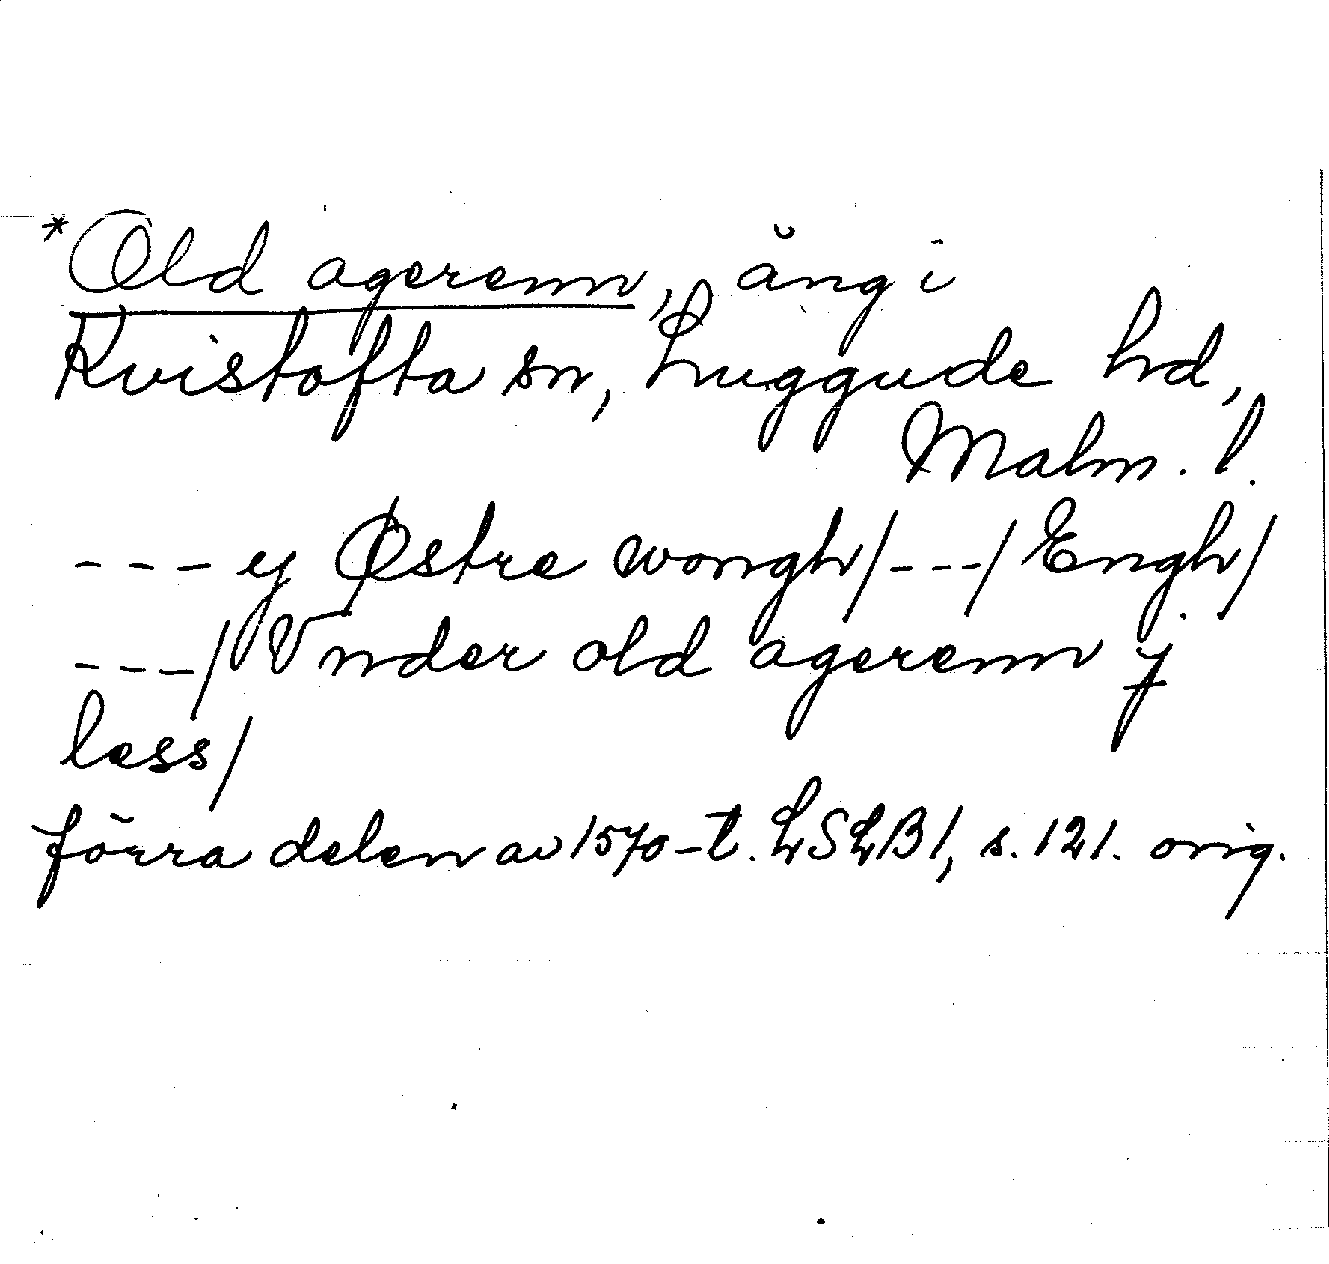 *Old agerenn, äng i
Kvistofta sn, Luggude hd,
Malm. l.
--- y Østre wongh/---/Engh/
---/Vnder old agerenn j
læss/
förra delen av 1570-t. LSLB1, s. 121. orig.